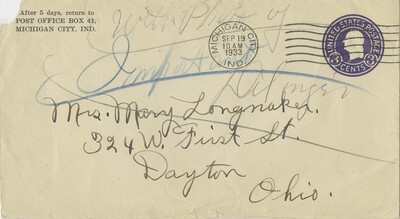 After 5 days, return to
POST OFFICE BOX 41,
MICHIGAN CITY, IND.
MICHIGAN CITY
SEP 19
10 AM
1933
IND.
UNITED STATES POSTAGE
3 CENTS 3
With
of
Important
Dillinger
Mrs. Mary Longnaker.
324 W. First St.
Dayton
Ohio.